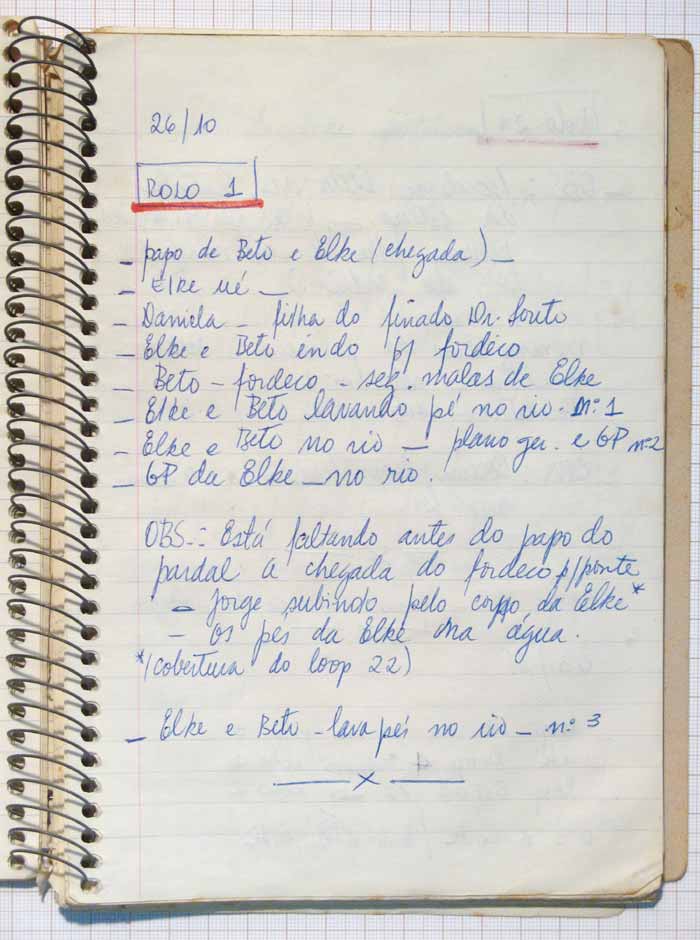 26/10
ROLO 1
- papo de Beto e Elke (chegada) -
- Elke vê -
- Daniela - filha do finado Dr. Souto
- Elke e Beto indo p/ fordeco
- Beto - fordeco - seg. malas de Elke
- Elke e Beto lavando pé no rio. nº 1
- Elke e Beto no rio - plano ger. e GP nº 2
- GP da Elke - no rio.
OBS.: Está faltando antes do papo do
pardal a chegada do fordeco p/ ponte
- Jorge subindo pelo corpo da Elke*
- os pés da Elke na água.
*(cobertura do loop 22)
- Elke e Beto - lava pés no rio - nº 3
x